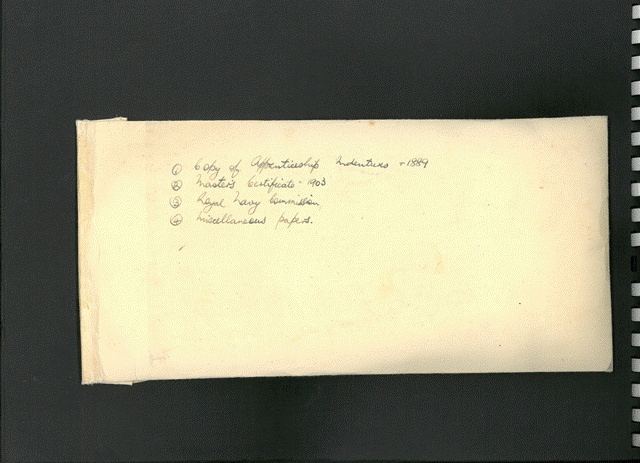 ① Copy of Apprenticeship Indentures - 1889
② Master's Certificate - 1903
③ Royal Navy Commission
④ Miscellaneous papers.